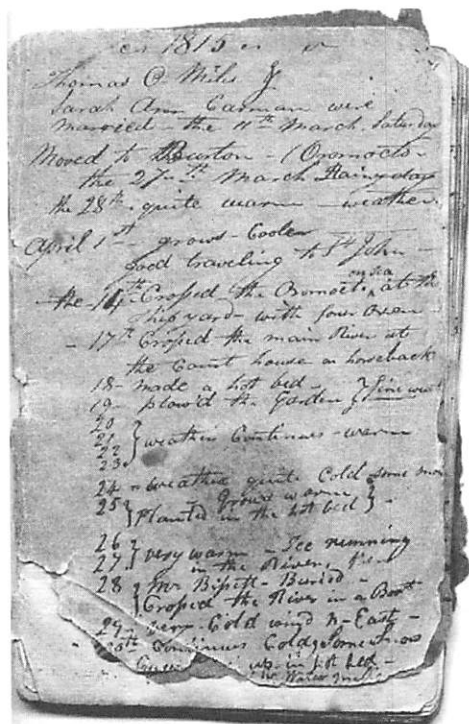 1815
Thomas O. Miles &
Sarah Ann Carman were
married - the 11th March, Saturday
Moved to Burton - (Oromocto -
the 27th March Rainy day
the 28th quite warm weather
April 1st - grows - Cooler
Good traveling to St John
the 14th Crossed the Oromocto on ice at the
Ship yard - with four Oxen -
- 17th Crossed the main River at
the Court house on horseback
18 - made a hot bed -
19 - plow'd the Garden } fine
20
21
22 } weather Continues - warm
23
24 - weather quite Cold some
25 } - Grows warm }
Planted in the hot bed
26
27 } very warm - Ice running
in the River,
28 } Mr Bissett - Buried -
Crossed the River in a Boat
29 - very Cold wind N-East -
Continues Cold
up in hot bed -